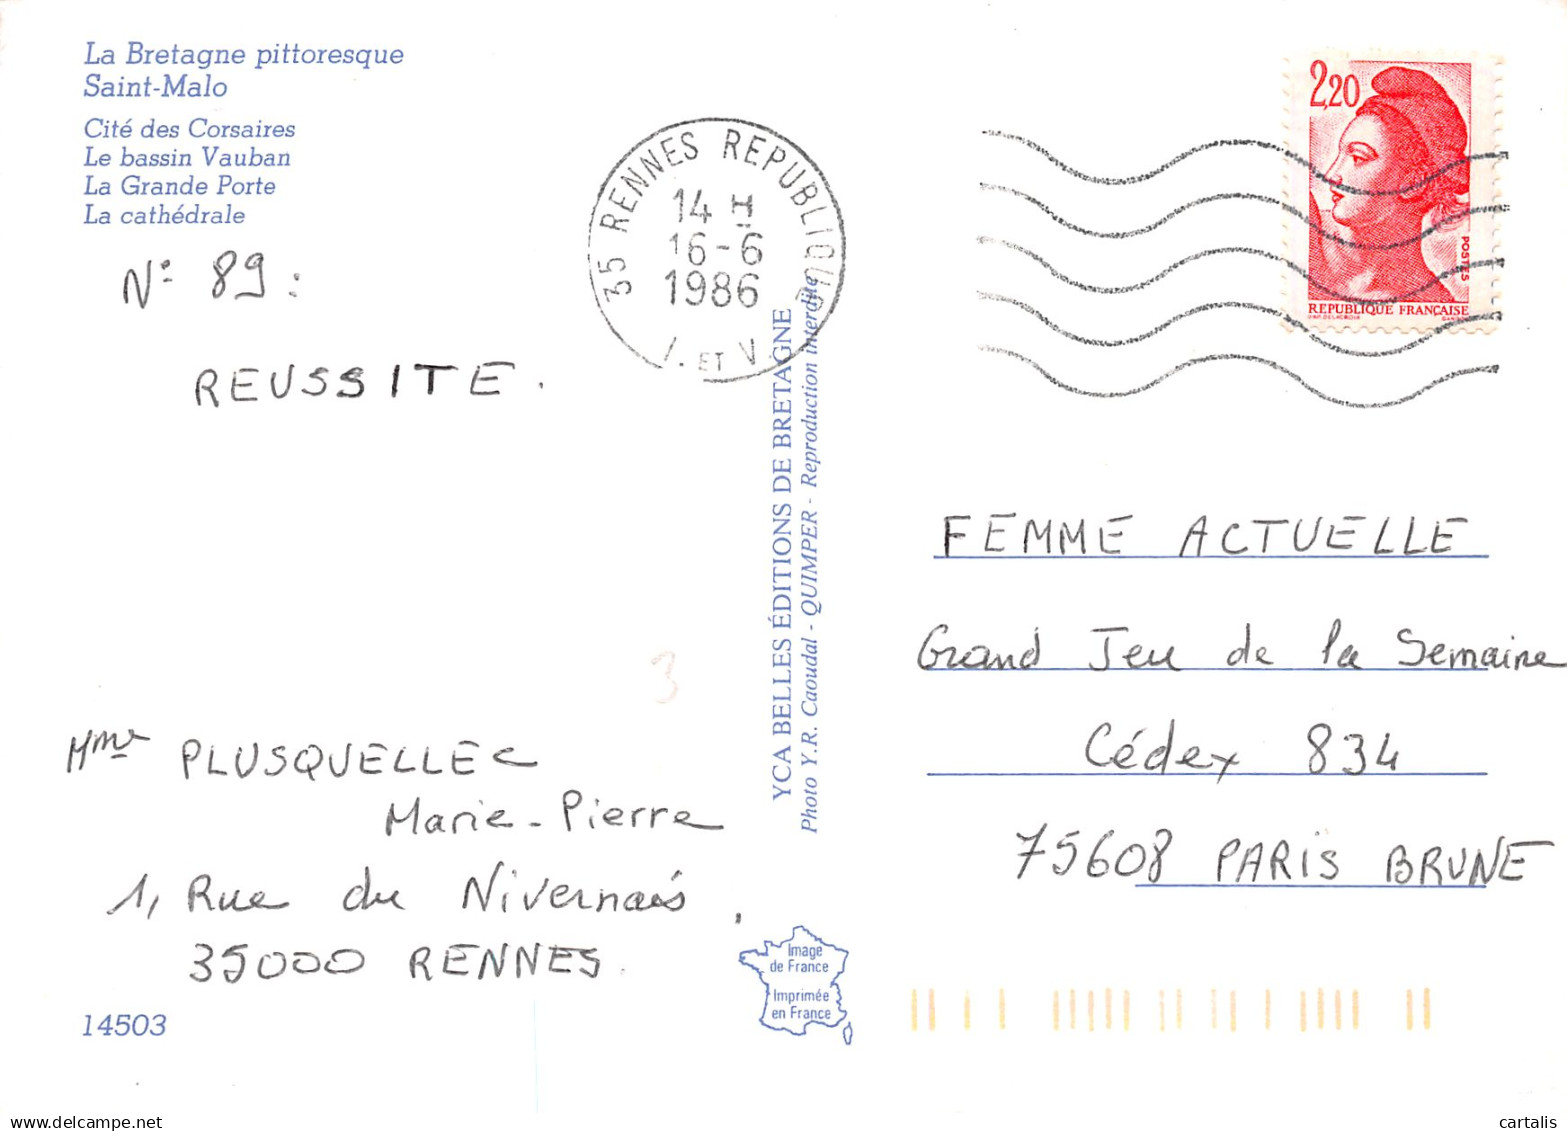 La Bretagne pittoresque
Saint-Malo
Cité des Corsaires
Le bassin Vauban
La Grande Porte
La cathédrale
N° 89 :
REUSSITE.
35 RENNES REPUBLIQUE
14 H
16-6
1986
I. ET V.
2,20
POSTES
REPUBLIQUE FRANÇAISE
D'AP. DELACROIX
YCA BELLES ÉDITIONS DE BRETAGNE
Photo Y.R. Caoudal - QUIMPER - Reproduction interdite
FEMME ACTUELLE
Grand Jeu de la Semaine
Cédex 834
75608 PARIS BRUNE
3
Mme PLUSQUELLEC
Marie-Pierre
1, Rue du Nivernais,
35000 RENNES.
14503
Image
de France
Imprimée
en France
cartalis